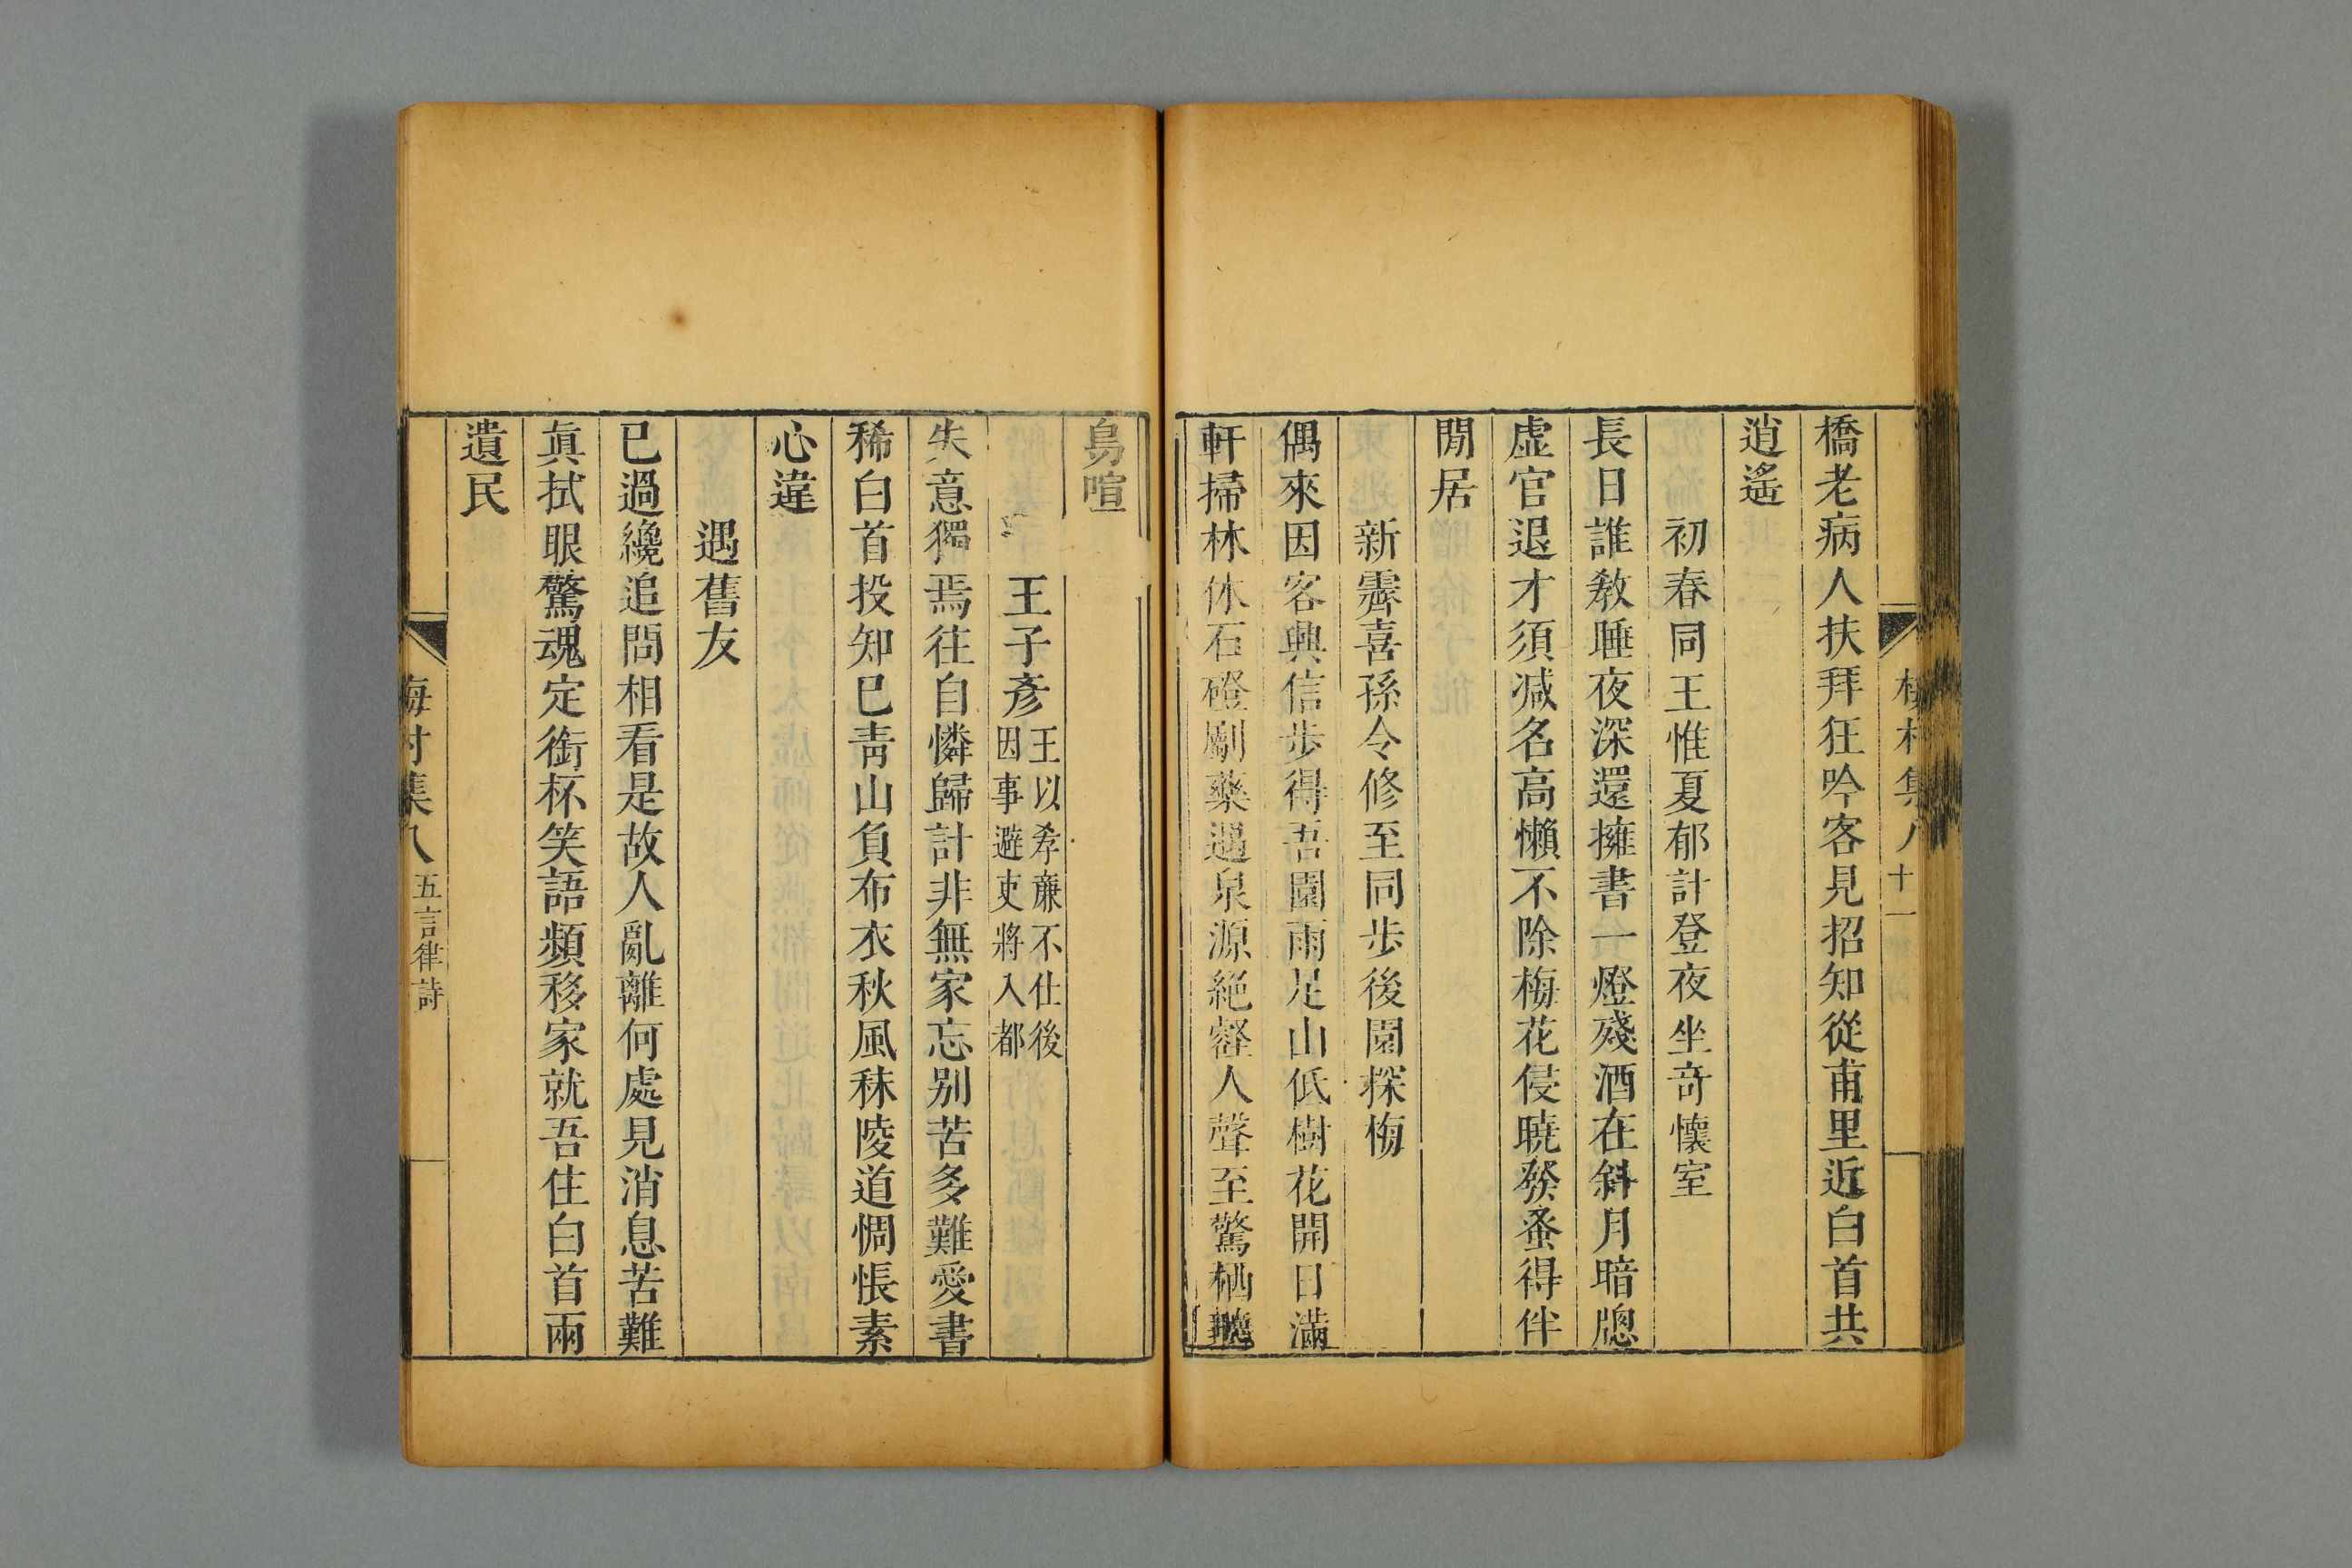 梅村集八 十一
橋老病人扶拜狂吟客見招知從甫里近白首共
逍遙
初春同王惟夏郁計登夜坐竒懷室
長日誰敎睡夜深還擁書一燈殘酒在斜月暗牎
虛官退才須减名高懶不除梅花侵曉發蚤得伴
閒居
新霽喜孫令修至同步後園探梅
偶來因客興信步得吾園雨足山低樹花開日滿
軒掃林休石磴劚藥遇泉源絕壑人聲至驚栖
鳥喧
王子彥 王以孝廉不仕後因事避吏將入都
失意獨焉往自憐歸計非無家忘别苦多難愛書
稀白首投知已靑山負布衣秋風秣陵道惆悵素
心違
遇舊友
已過纔追問相看是故人亂離何處見消息苦難
眞拭眼驚魂定銜杯笑語頻移家就吾住白首兩
遺民
梅村集八 五言律詩